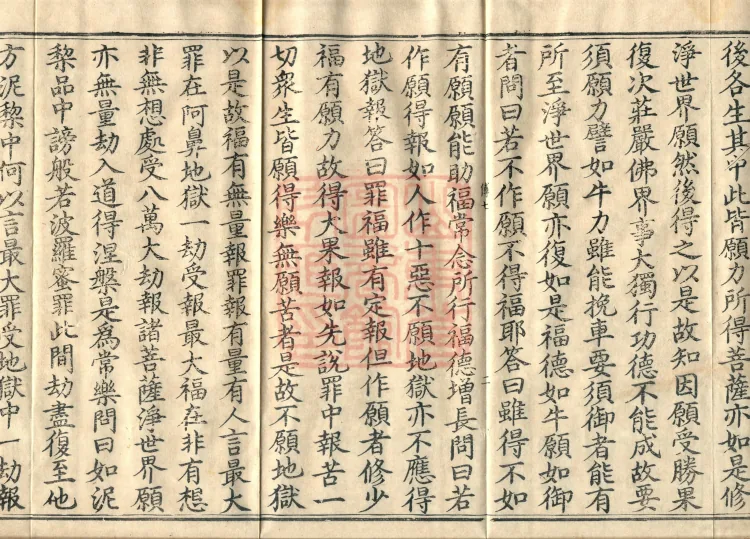 後各生其中此皆願力所得菩薩亦如是修
淨世界願然後得之以是故知因願受勝果
復次莊嚴佛界事大獨行功德不能成故要
須願力譬如牛力雖能挽車要須御者能有
所至淨世界願亦復如是福德如牛願如御
者問曰若不作願不得福耶荅曰雖得不如
有願願能助福常念所行福德增長問曰若
作願得報如人作十惡不願地獄亦不應得
地獄報荅曰罪福雖有定報但作願者修少
福有願力故得大果報如先說罪中報苦一
切衆生皆願得樂無願苦者是故不願地獄
以是故福有無量報罪報有量有人言最大
罪在阿鼻地獄一劫受報最大福在非有想
非無想處受八萬大劫報諸菩薩淨世界願
亦無量劫入道得涅槃是爲常樂問曰如泥
棃品中謗般若波羅蜜罪此間劫盡復至他
方泥棃中何以言最大罪受地獄中一劫報